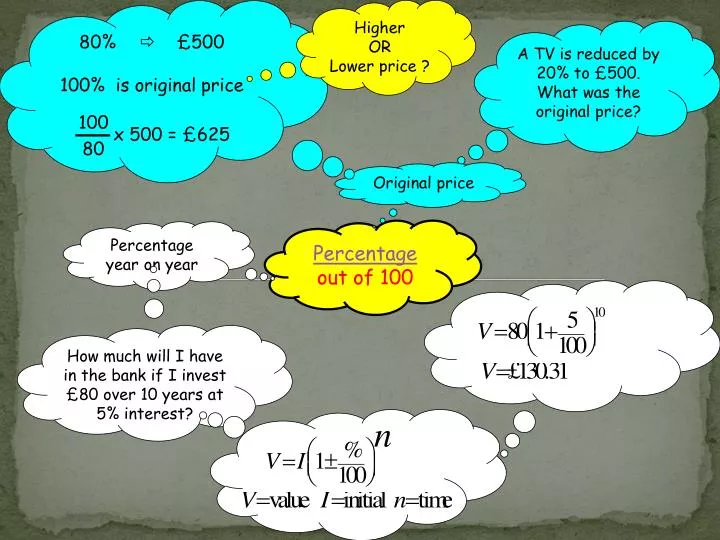 80% ⇨ £500
100% is original price
100
80
x 500 = £625
Higher
OR
Lower price ?
A TV is reduced by
20% to £500.
What was the
original price?
Original price
Percentage
year on year
Percentage
out of 100
How much will I have
in the bank if I invest
£80 over 10 years at
5% interest?
V=80(1+5/100)^10
V=£130.31
V=I(1±%/100)^n
V=value I=initial n=time